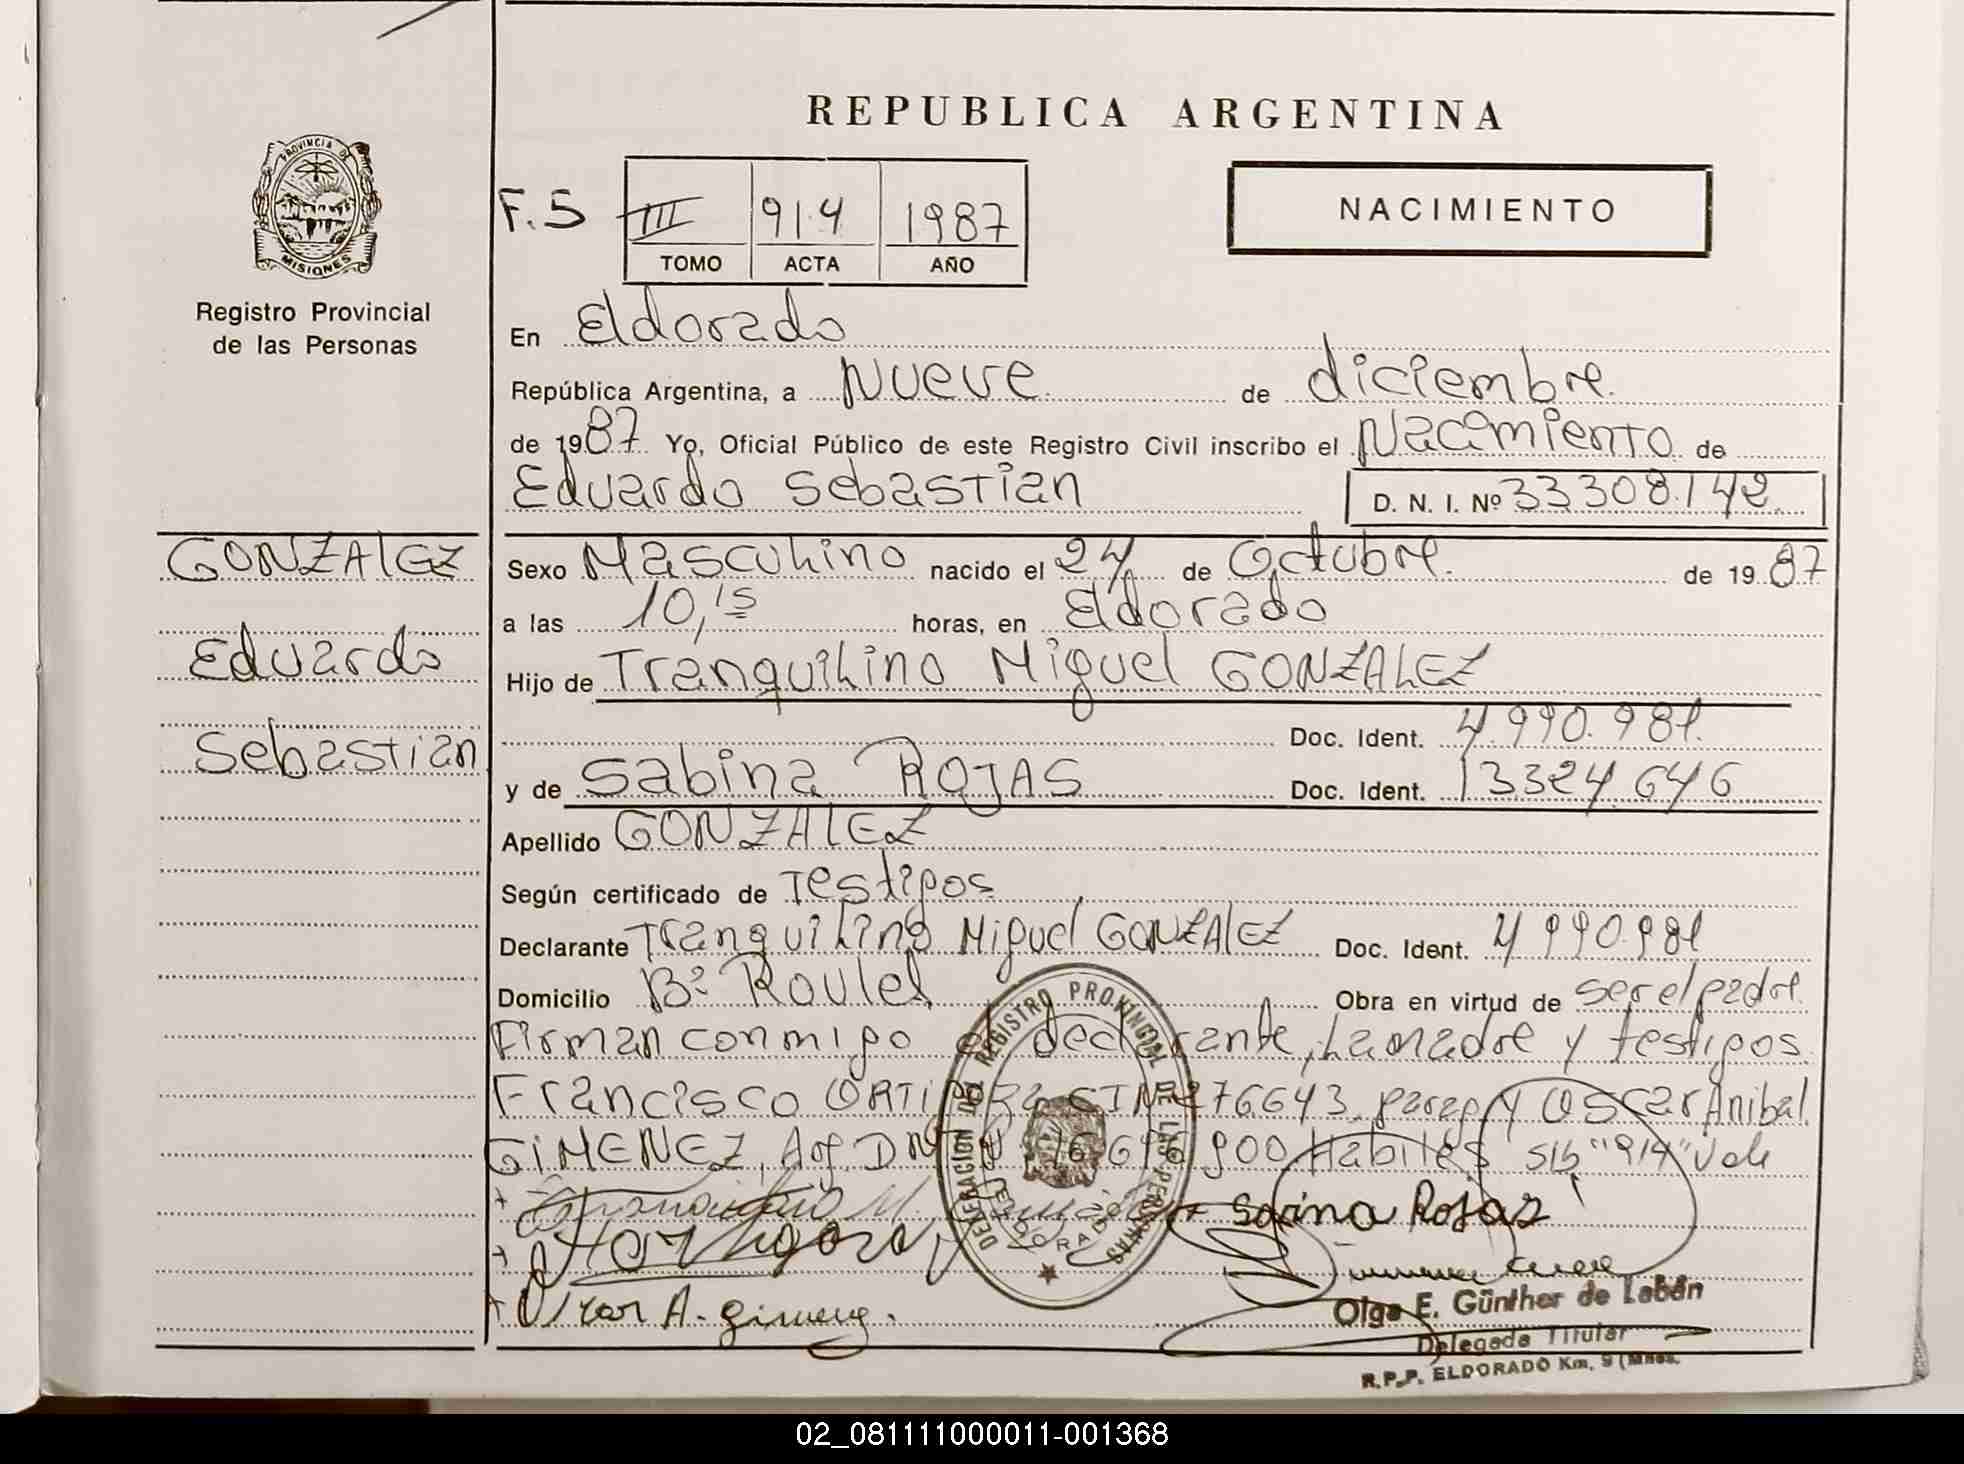 REPUBLICA ARGENTINA
PROVINCIA DE
MISIONES
Registro Provincial
de las Personas
F. 5
III 914 1987
TOMO ACTA AÑO
NACIMIENTO
En Eldorado
República Argentina, a Nueve de diciembre.
de 1987 Yo, Oficial Público de este Registro Civil inscribo el Nacimiento de
Eduardo Sebastian D. N. I. Nº 33308.142.
GONZALEZ
Eduardo
Sebastian
Sexo Masculino nacido el 24 de Octubre. de 1987
a las 10,15 horas, en Eldorado
Hijo de Tranquilino Miguel GONZALEZ
Doc. Ident. 4.990.981.
y de Sabina ROJAS Doc. Ident. 13324.646
Apellido GONZALEZ
Según certificado de Testigos
Declarante Tranquilino Miguel GONZALEZ Doc. Ident. 4990.981
Domicilio Bº Obra en virtud de ser el padre.
Firman conmigo el declarante, La madre y testigos.
Francisco 276643. parag y Oscar Anibal
GIMENEZ, Arg. 900 Habiles S/b "914" Vale
Sabina Rojas
Oscar A. Gimenez.
DELEGACION DEL REGISTRO PROVINCIAL DE LAS PERSONAS
ELDORADO
Olga E. Günther de Labán
Delegada Titular
R.P.P. ELDORADO Km. 9 (Mnes.
02_081111000011-001368